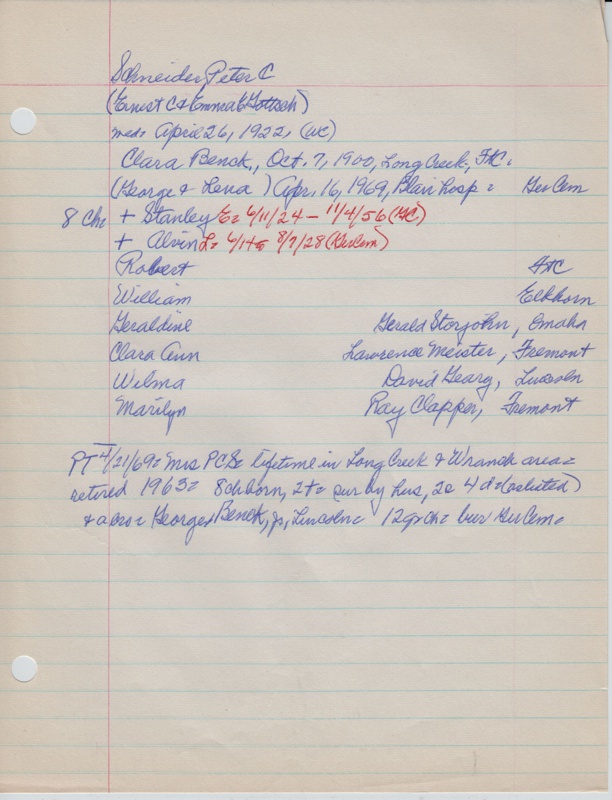 Schneider, Peter C
(Ernest C & Emma E Gottsch)
wed= April 26, 1922, (WC)
Clara Benck, Oct. 7, 1900, Long Creek, FtC.
(George & Lena) Apr. 16, 1969, Blair hosp = Ger Cem
8 Ch= + Stanley E= 6/11/24 - 11/4/56 (GC)
+ Alvin L= 8/7/28 (GerCem)
Robert FtC
William Elkhorn
Geraldine Gerald Storjohn, Omaha
Clara Ann Lawrence Meister, Fremont
Wilma David Gearg, Lincoln
Marilyn Ray Clapper, Fremont
PT 4/21/69= Mrs PCS= lifetime in Long Creek & Wranch area=
retired 1965= 8 ch born, 2+= sur by hus, 2s 4d=(as listed)
& a bro= George Benck, Jr, Lincoln= 12 grch= bur Ger Cem=